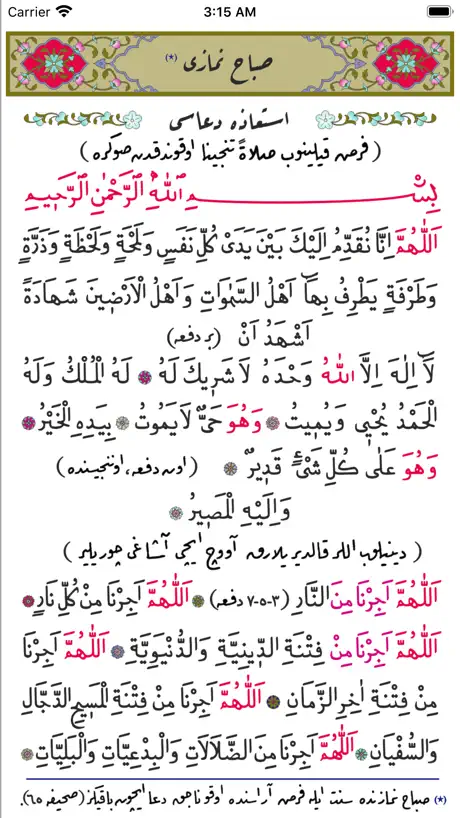 Carrier 3:15 AM
صباح نمازى (*)
استعاذه دعاسى
( فرض قيلينوب صلاةً تنجينا اوقوندقدن صوكره )
بِسْــــــمِ اللّٰهِ الرَّحْمٰنِ الرَّحٖيمِ
اَللّٰهُمَّ اِنَّا نُقَدِّمُ اِلَيْكَ بَيْنَ يَدَىْ كُلِّ نَفَسٍ وَلَمْحَةٍ وَلَحْظَةٍ وَذَرَّةٍ
وَطَرْفَةٍ يَطْرِفُ بِهَٓا اَهْلُ السَّمٰوَاتِ وَاَهْلُ الْاَرْضٖينَ شَهَادَةً
اَشْهَدُ اَنْ (بر دفعه)
لَٓا اِلٰهَ اِلَّا اللّٰهُ وَحْدَهُ لَا شَرٖيكَ لَهُ ۞ لَهُ الْمُلْكُ وَلَهُ
الْحَمْدُ يُحْيٖى وَيُمٖيتُ ۞ وَهُوَ حَىٌّ لَا يَمُوتُ ۞ بِيَدِهِ الْخَيْرُ ۞
وَهُوَ عَلٰى كُلِّ شَىْءٍ قَدٖيرٌ ۞ (اون دفعه، اوننجيسنده)
وَاِلَيْهِ الْمَصٖيرُ ۞
( دينيلوب اللر قالديريلارق آووچ ايچى آشاغى چوريلير )
اَللّٰهُمَّ اَجِرْنَا مِنَ النَّارِ (٣-٥-٧ دفعه) ۞ اَللّٰهُمَّ اَجِرْنَا مِنْ كُلِّ نَارٍ ۞
اَللّٰهُمَّ اَجِرْنَا مِنْ فِتْنَةِ الدّٖينِيَّةِ وَالدُّنْيَوِيَّةِ ۞ اَللّٰهُمَّ اَجِرْنَا
مِنْ فِتْنَةِ اٰخِرِ الزَّمَانِ ۞ اَللّٰهُمَّ اَجِرْنَا مِنْ فِتْنَةِ الْمَسٖيحِ الدَّجَّالِ
وَالسُّفْيَانِ ۞ اَللّٰهُمَّ اَجِرْنَا مِنَ الضَّلَالَاتِ وَالْبِدْعِيَّاتِ وَالْبَلِيَّاتِ ۞
(*) صباح نمازنده سنت ايله فرض آراسنده اوقوناجق دعا ايچون باقيڭز (صحيفه ٦٥).